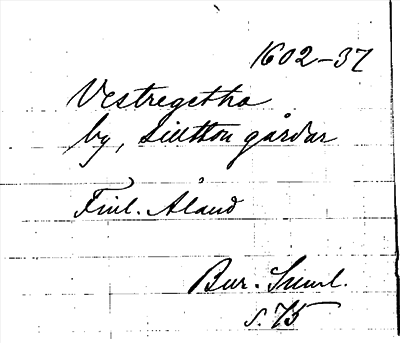 1602-37
Vestregetha
by, Sietton gårdar
Finl. Åland
Bur. Suml.
s. 75